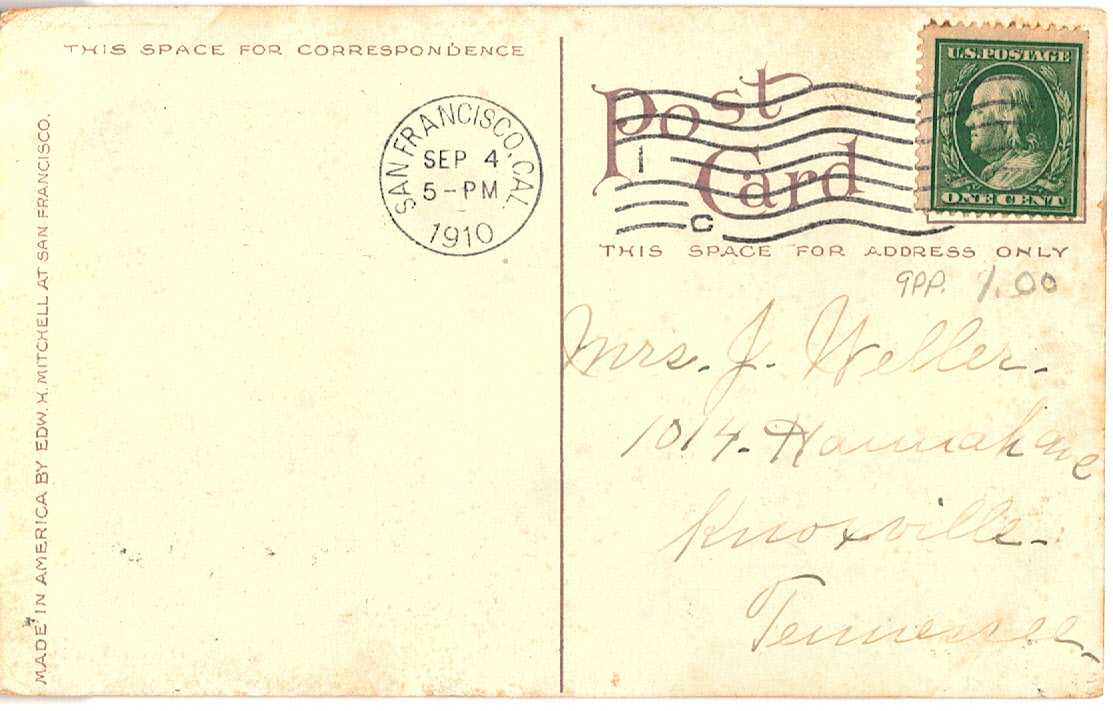 THIS SPACE FOR CORRESPONDENCE
MADE IN AMERICA BY EDW. H. MITCHELL AT SAN FRANCISCO.
SAN FRANCISCO, CAL.
SEP 4
5-PM
1910
Post
Card
1
C
U.S. POSTAGE
ONE CENT
THIS SPACE FOR ADDRESS ONLY
9PP. 1.00
Mrs. J. Weller.
1014. Hannah ave
Knoxville-
Tennessee-